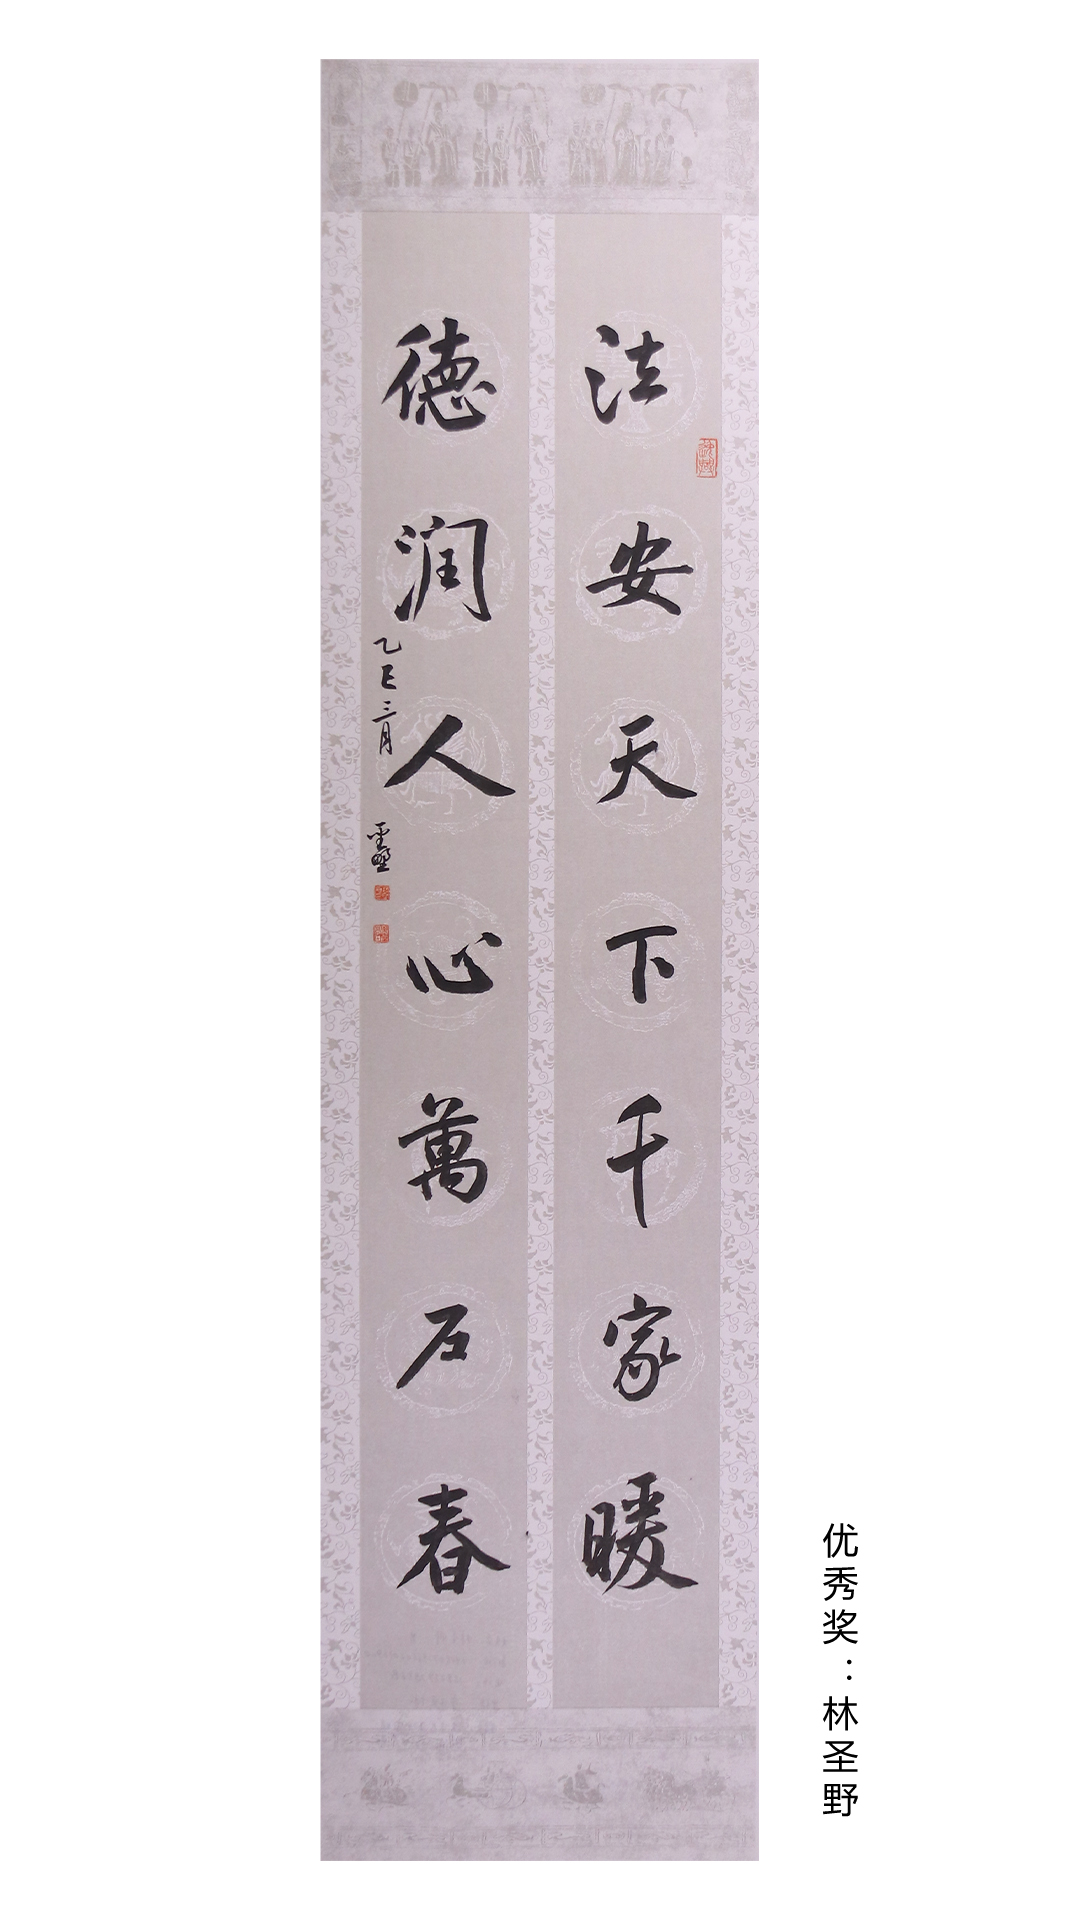 法安天下千家暖
德润人心萬户春
乙巳三月
优秀奖：林圣野